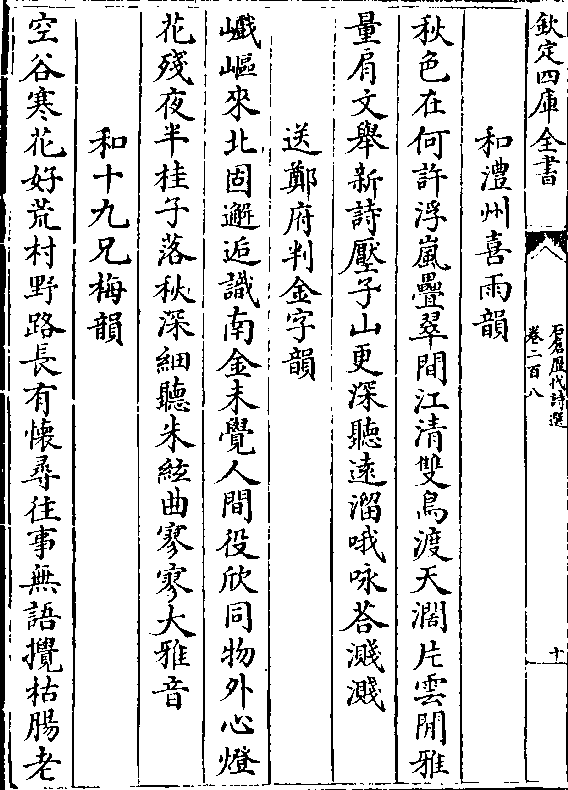 欽定四庫全書
石倉歷代詩選
卷二百八
十
和澧州喜雨韻
秋色在何許浮嵐疊翠間江清雙鳥渡天濶片雲閒雅
量肩文舉新詩壓子山更深聽遠溜哦咏荅濺濺
送鄭府判金字韻
巇嶇來北固邂逅識南金未覺人間役欣同物外心燈
花殘夜半桂子落秋深細聽朱絃曲寥寥大雅音
和十九兄梅韻
空谷寒花好荒村野路長有懷尋往事無語攪枯腸老